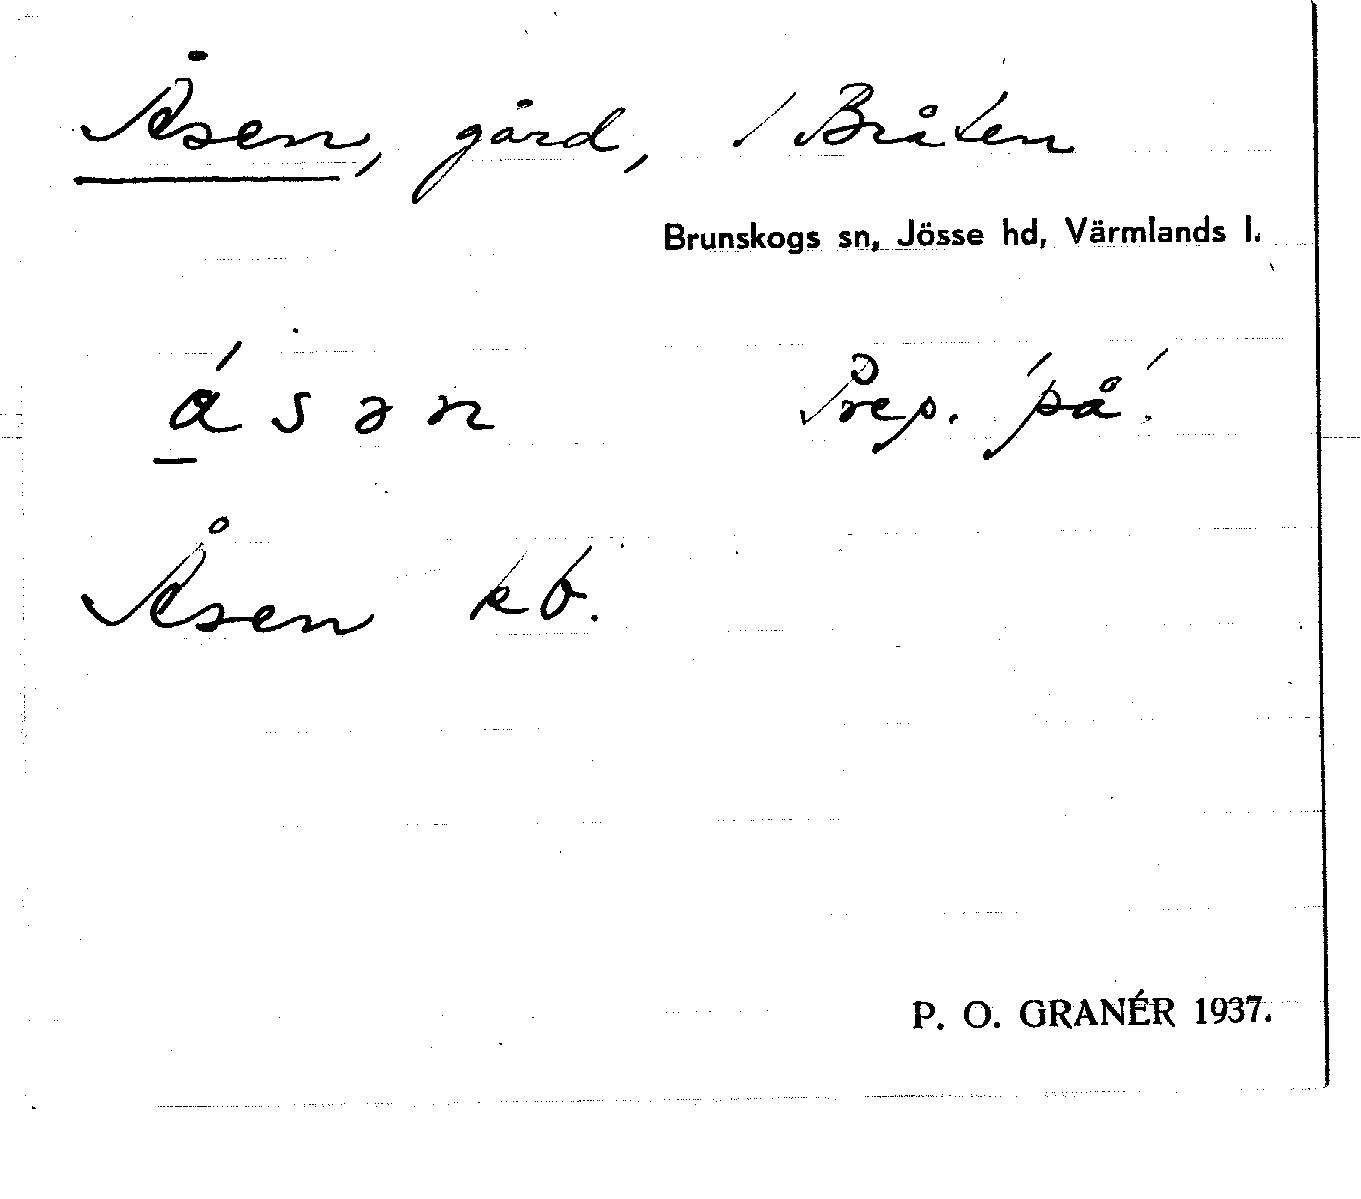 Åsen, gård, / Bråten
Brunskogs sn, Jösse hd, Värmlands l.
ásən Prep. 'på'.
Åsen kb.
P. O. GRANÉR 1937.